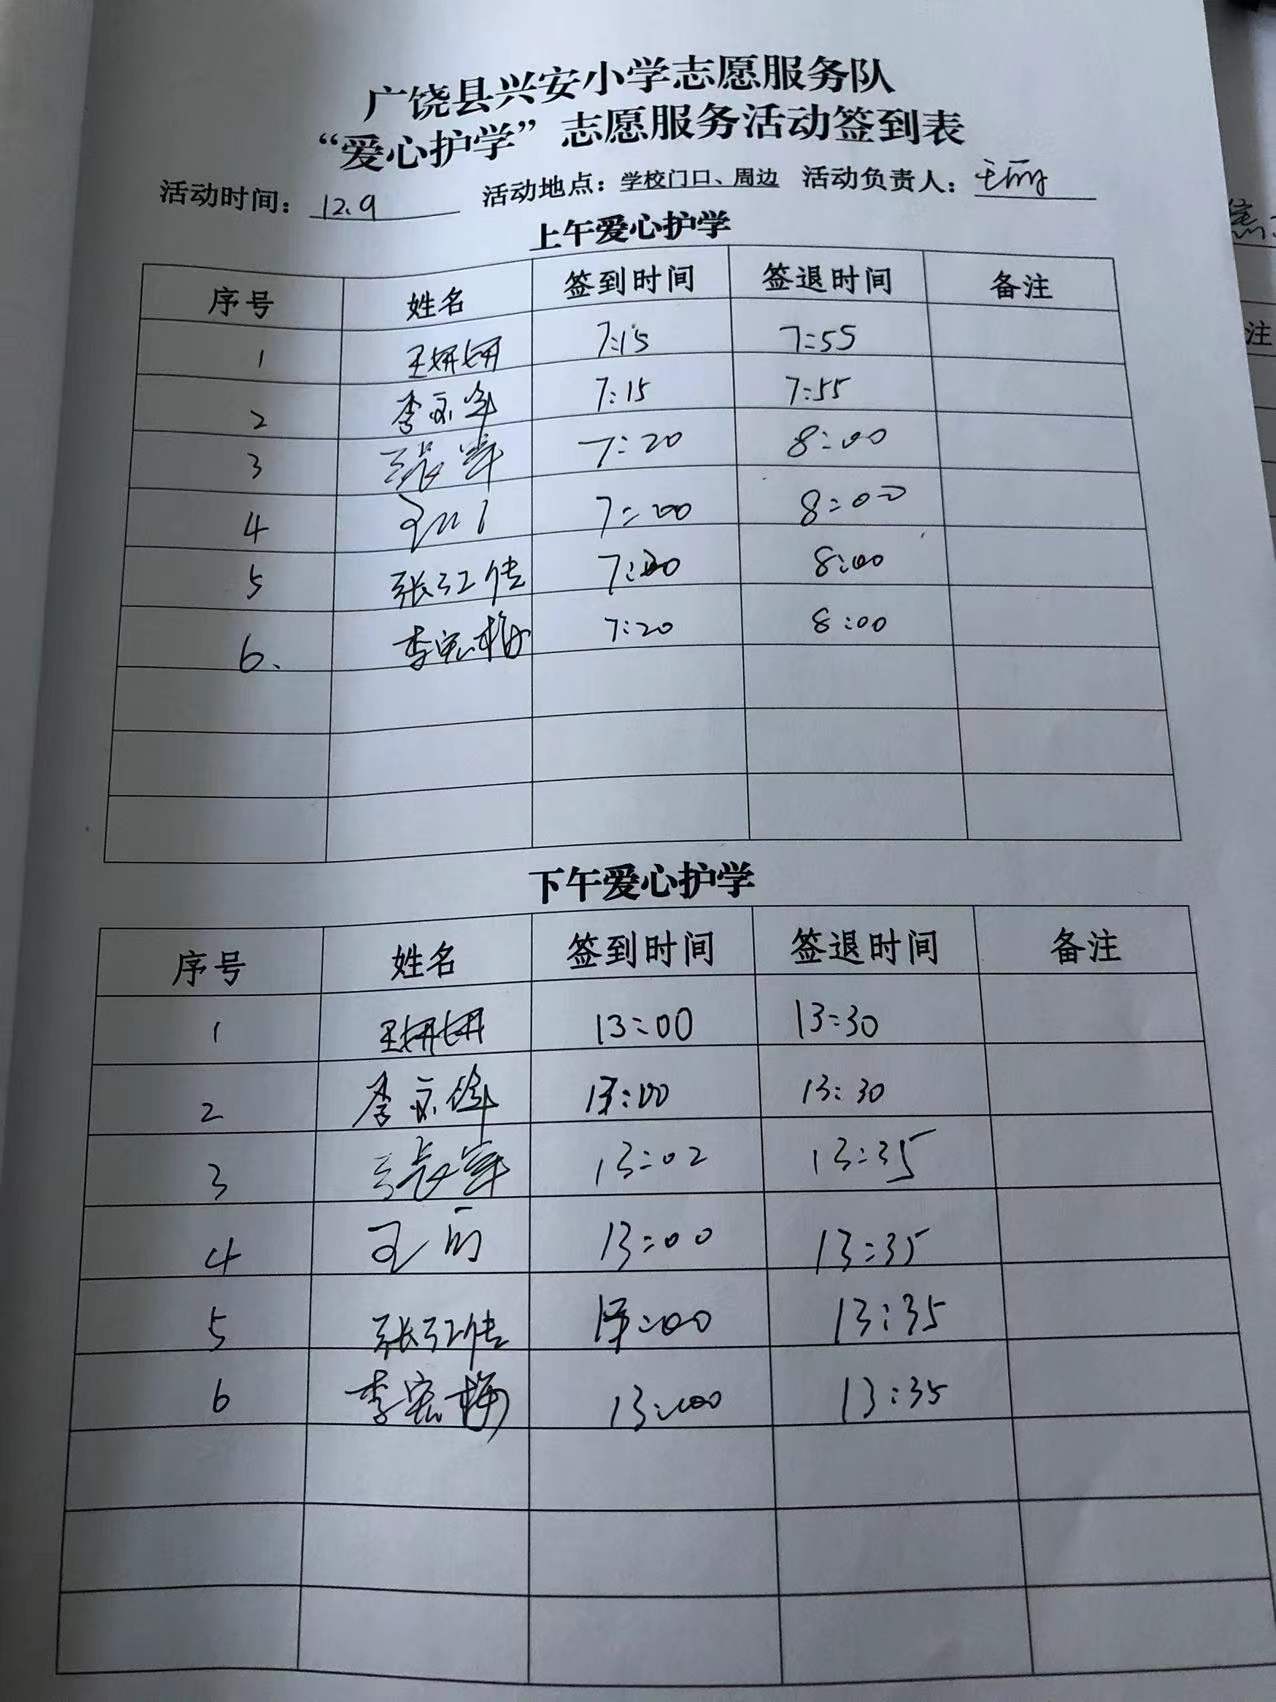 广饶县兴安小学志愿服务队
“爱心护学”志愿服务活动签到表
活动时间：12.9 活动地点：学校门口、周边 活动负责人：
上午爱心护学
序号 姓名 签到时间 签退时间 备注
1 王妍妍 7:15 7:55
2 李京华 7:15 7:55
3 7:20 8:00
4 7:00 8:00
5 张红伟 8:00
6、 李宏梅 7:20 8:00
下午爱心护学
序号 姓名 签到时间 签退时间 备注
1 王妍妍 13:00 13:30
2 13:00 13:30
3 13:02 13:35
4 13:00 13:35
5 13:00 13:35
6 李宏梅 13:00 13:35
注